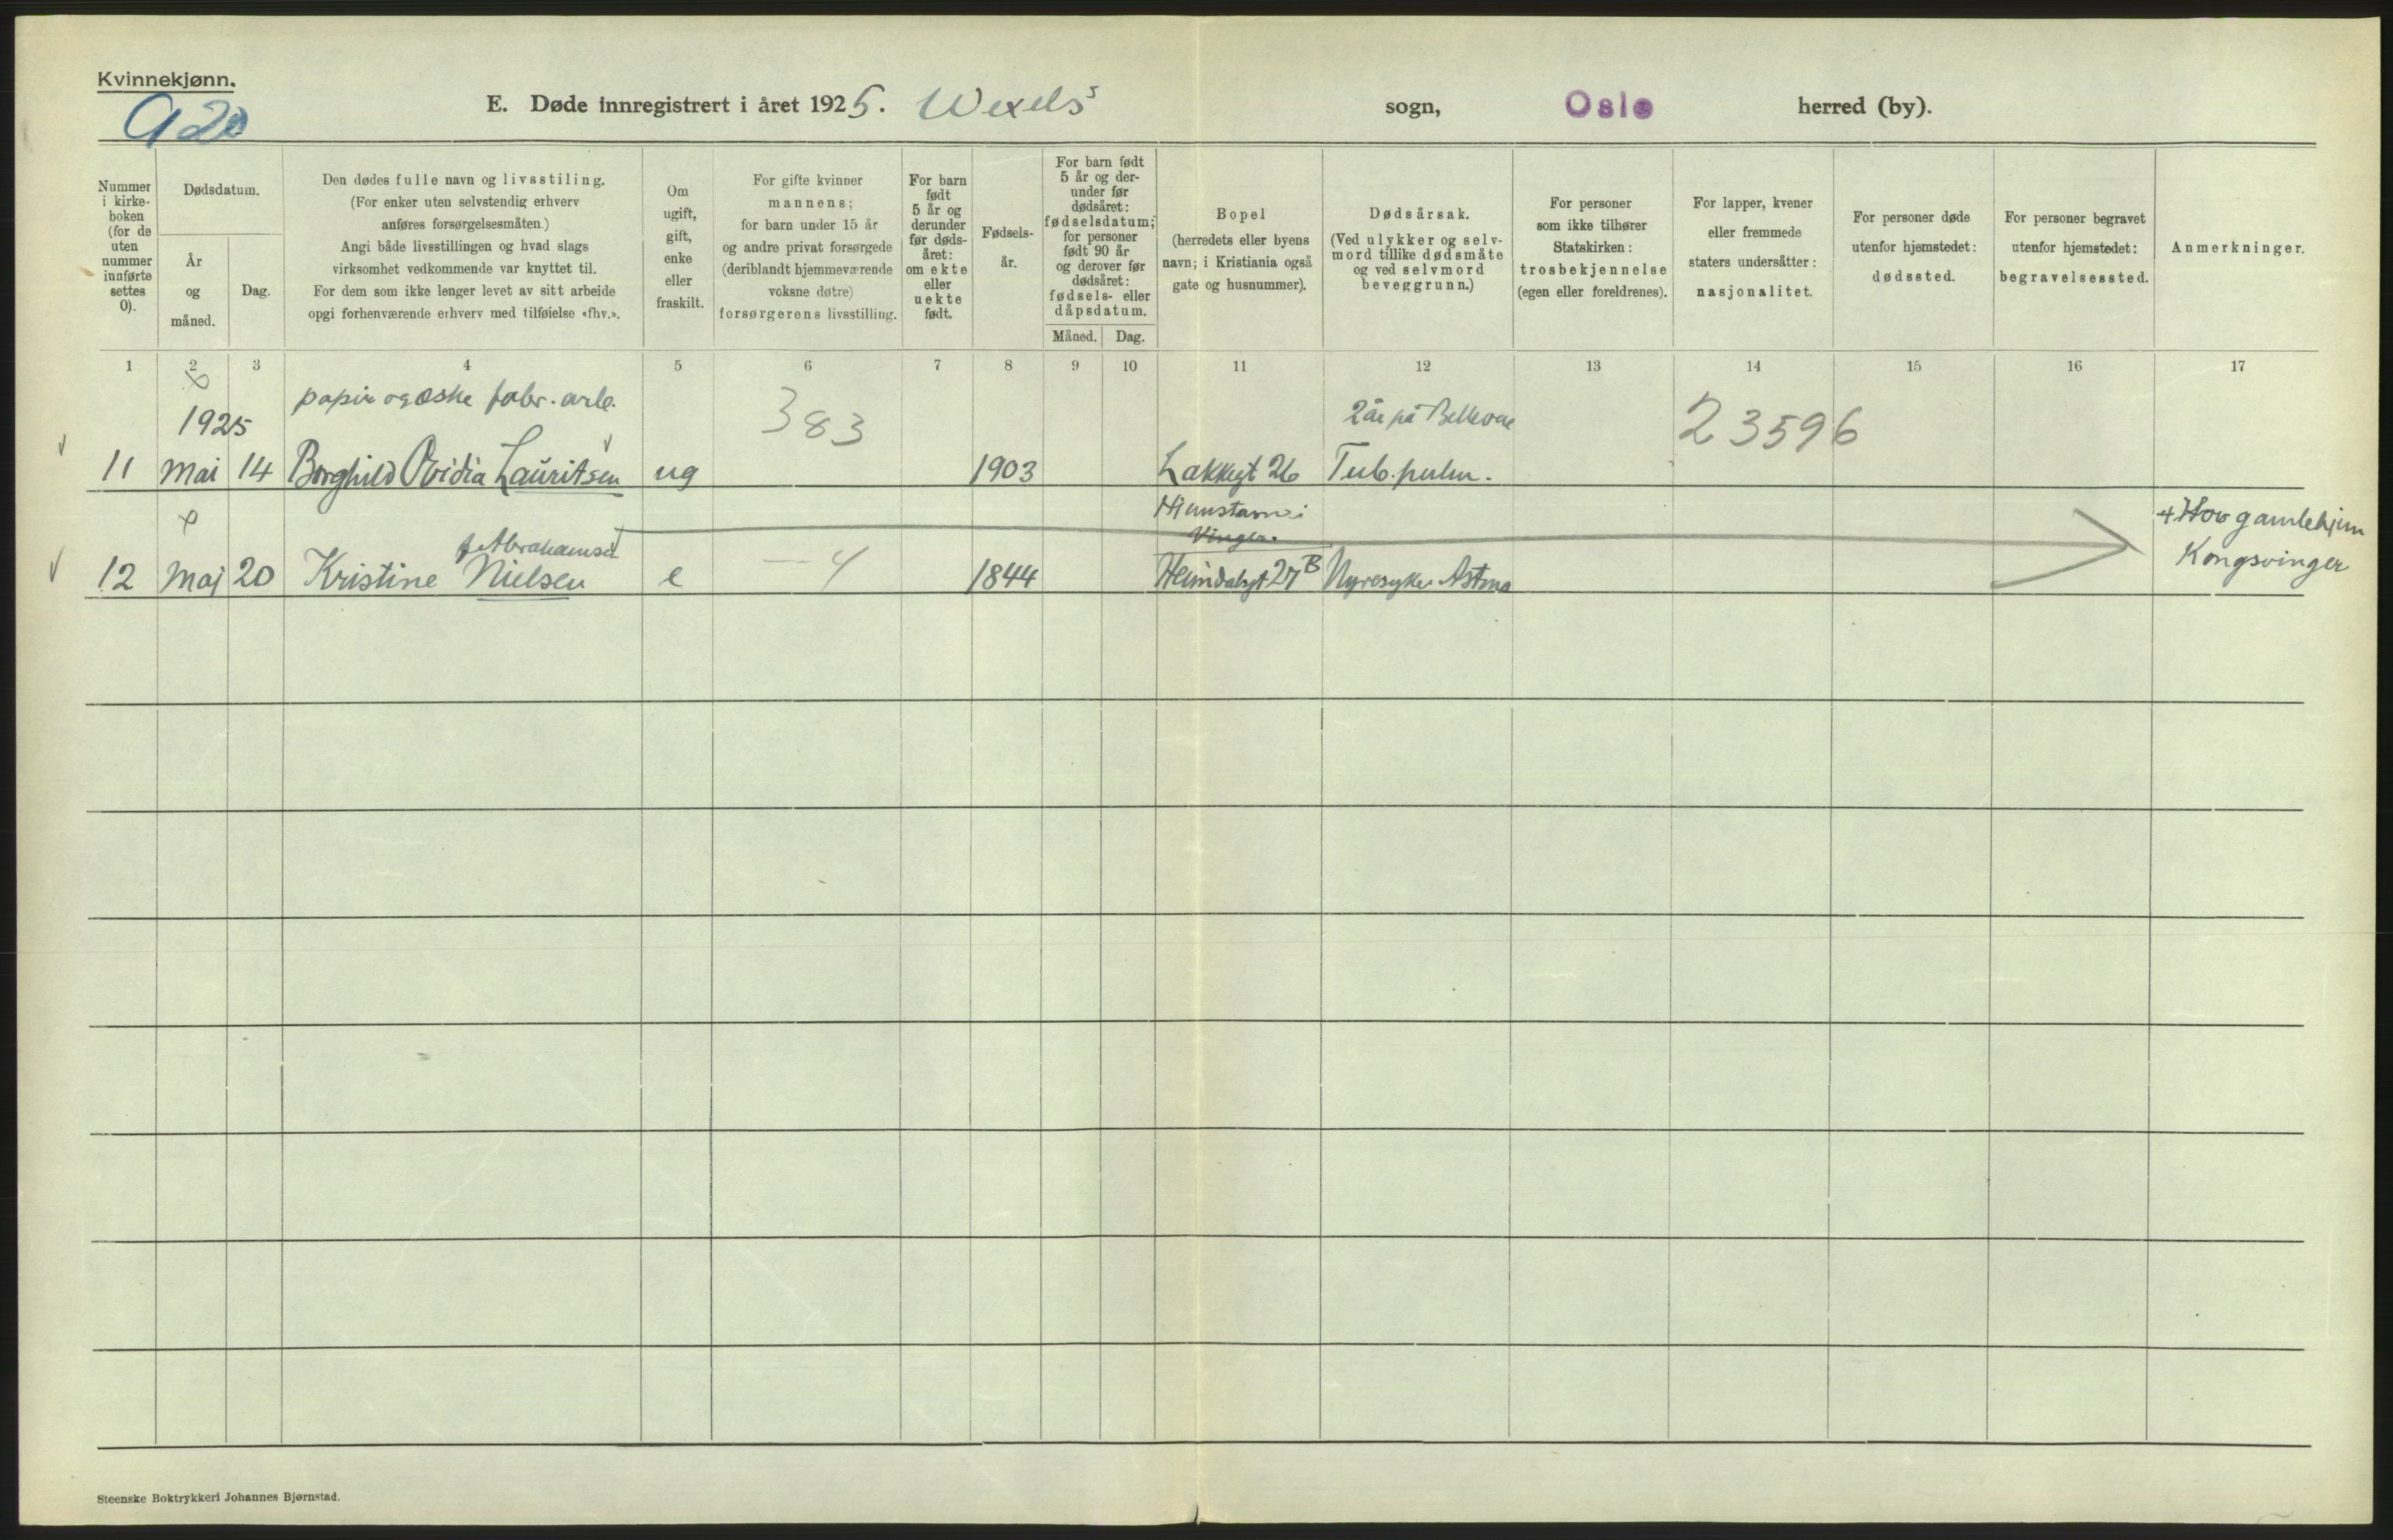 Kvinnekjønn.
920
E. Døde innregistrert i året 1925. Wexels sogn, Oslo herred (by).
Nummer i kirke-
boken
(for de
uten
nummer
innførte
settes
0).
Dødsdatum.
År
og
måned.
Dag.
Den dødes fulle navn og livsstiling.
(For enker uten selvstendig erhverv
anføres forsørgelsesmåten.)
Angi både livsstillingen og hvad slags
virksomhet vedkommende var knyttet til.
For dem som ikke lenger levet av sitt arbeide
opgi forhenværende erhverv med tilføielse «fhv.».
Om
ugift,
gift,
enke
eller
fraskilt.
For gifte kvinner
mannens;
for barn under 15 år
og andre privat forsørgede
(deriblandt hjemmeværende
voksne døtre)
forsørgerens livsstilling.
For barn
født
5 år og
derunder
før døds-
året:
om ekte
eller
uekte
født.
Fødsels-
år.
For barn født
5 år og der-
under før
dødsåret:
fødselsdatum;
for personer
født 90 år
og derover før
dødsåret:
fødsels- eller
dåpsdatum.
Måned. Dag.
Bopel
(herredets eller byens
navn; i Kristiania også
gate og husnummer).
Dødsårsak.
(Ved ulykker og selv-
mord tillike dødsmåte
og ved selvmord
beveggrunn.)
For personer
som ikke tilhører
Statskirken:
trosbekjennelse
(egen eller foreldrenes).
For lapper, kvener
eller fremmede
staters undersåtter:
nasjonalitet.
For personer døde
utenfor hjemstedet:
dødssted.
For personer begravet
utenfor hjemstedet:
begravelsessted.
Anmerkninger.
1 2 3 4 5 6 7 8 9 10 11 12 13 14 15 16 17
papir og æske fabr. arb.
1925 383 2 år på Bellevue 23596
11 Mai 14 Borghild Ovidia Lauritsen ug 1903 Lakkegt 26 Tub. pulm.
Vinger.
f. Abrahamsd
12 Maj 20 Kristine Nielsen e — 4 1844 Heimdalsgt 27 B Nyresyke Astma
+ Hov gamlehjem
Kongsvinger
Steenske Boktrykkeri Johannes Bjørnstad.